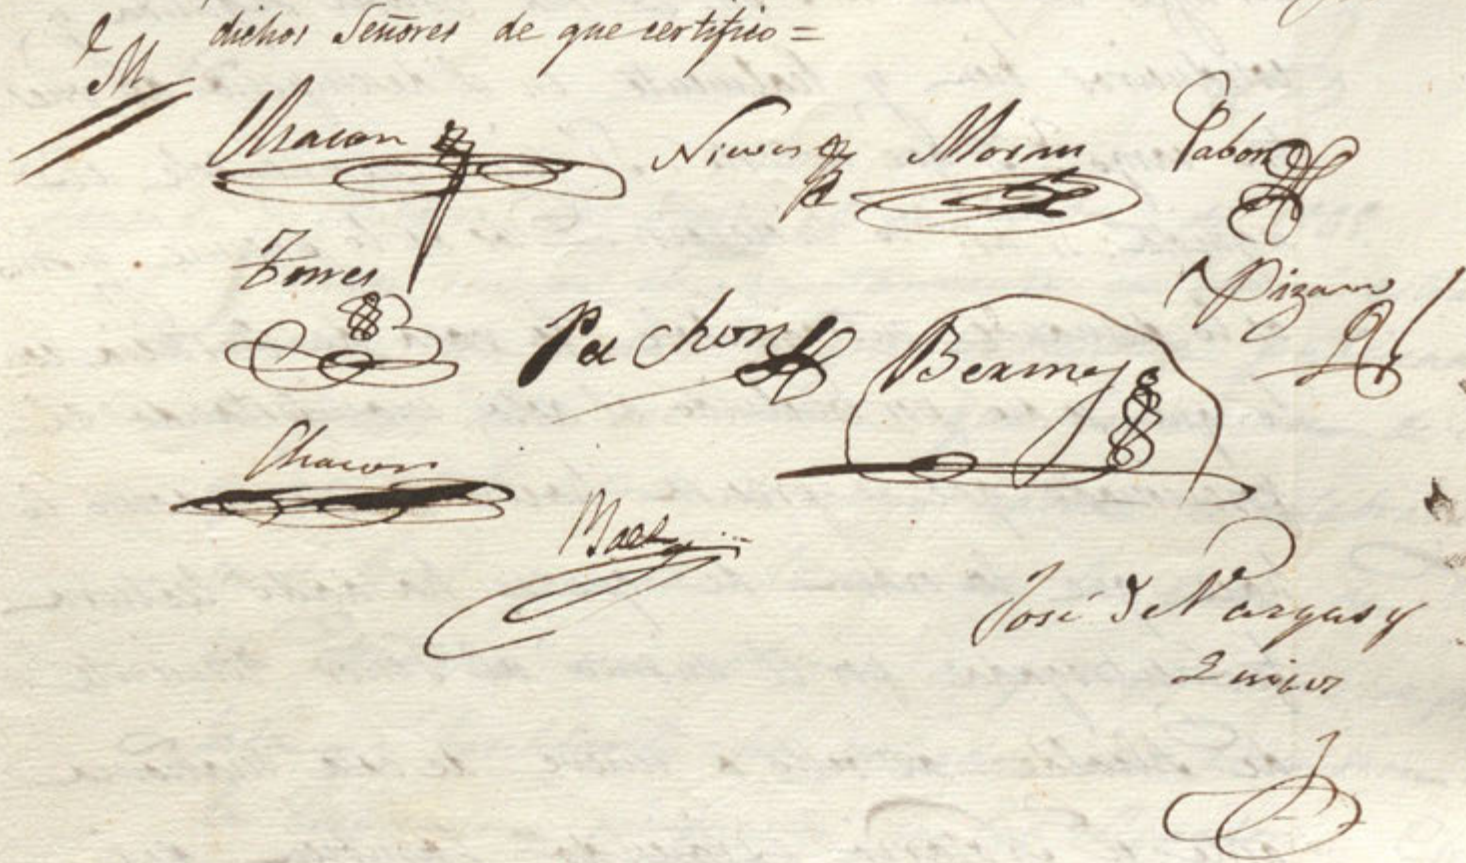 dichos Señores de que certifico=
M
Chacon Nieves Moran Pabon
Torres Pizarro
Pachon Bermejo
Chacon
Baez
José de Vargas y
Quixos